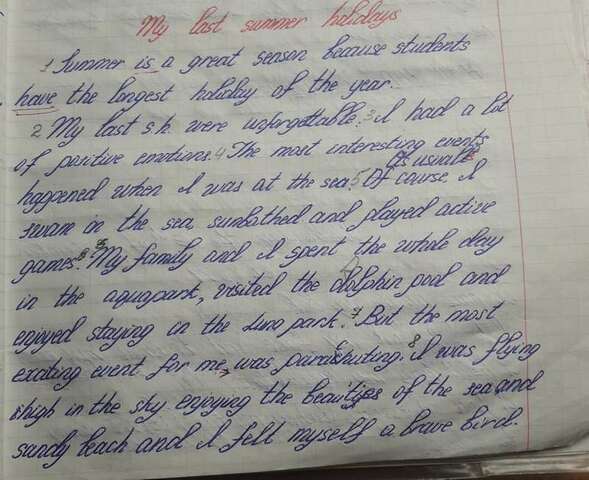 My last summer holidays
1 Summer is a great season because students
have the longest holiday of the year.
2 My last s.h. were unforgettable. 3 I had a lot
of positive emotions. 4 The most interesting events
As usual
happened when I was at the sea. 5 Of course I
swam in the sea, sunbathed and played active
games. 6 My family and I spent the whole day
in the aquapark, visited the dolphin pool and
enjoyed staying in the Luna park. 7 But the most
exciting event for me, was parachuting. 8 I was flying
high in the sky enjoying the beauties of the sea and
sandy beach and I fell myself a brave bird.